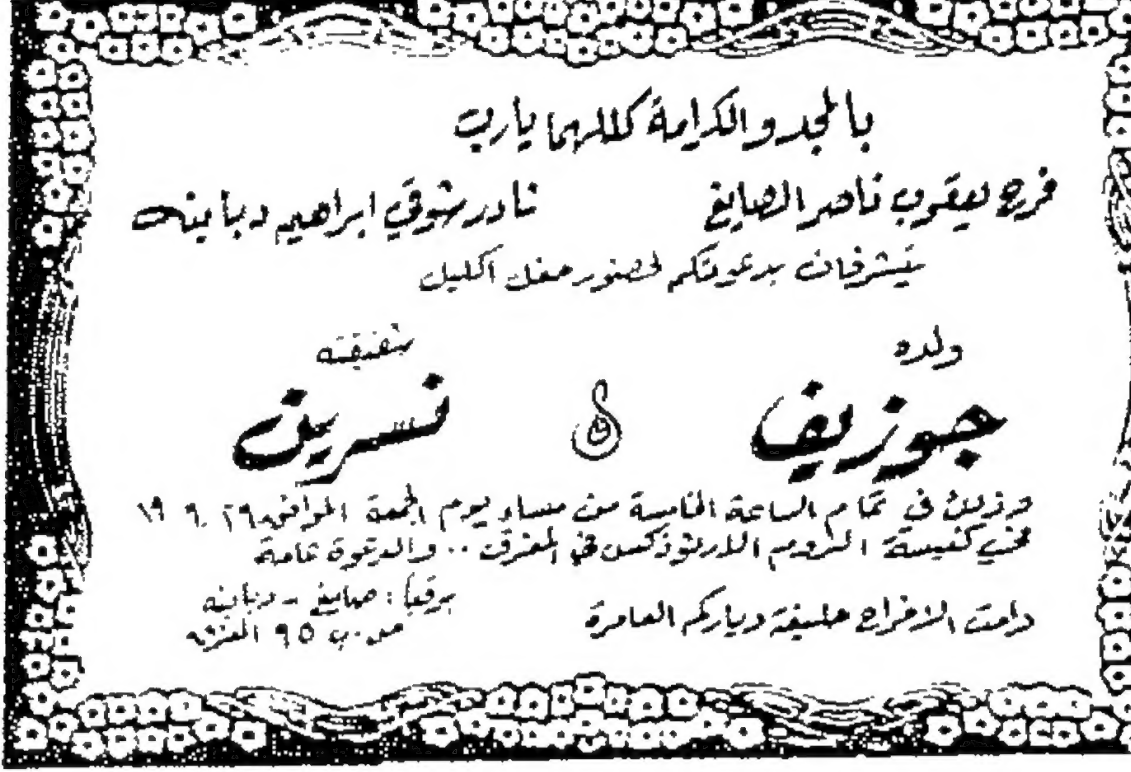 بالمجد والكرامة كللهما يارب
فرح يعقوب ناصر الصايغ
نادر شوقي ابراهيم دبابنه
يتشرفان بدعوتكم لحضور حفل اكليل
ولده
شقيقته
جوزيف
نسرين
وذلك في تمام الساعة الخامسة من مساء يوم الجمعة الموافق ٢٩ ٩ ١٩
في كنيسة الروم الارثوذكس في المفرق .. والدعوة عامة
دامت الافراح حليفة دياركم العامرة
برقيا : صايغ - دبابنه
ص.ب ٩٥ المفرق